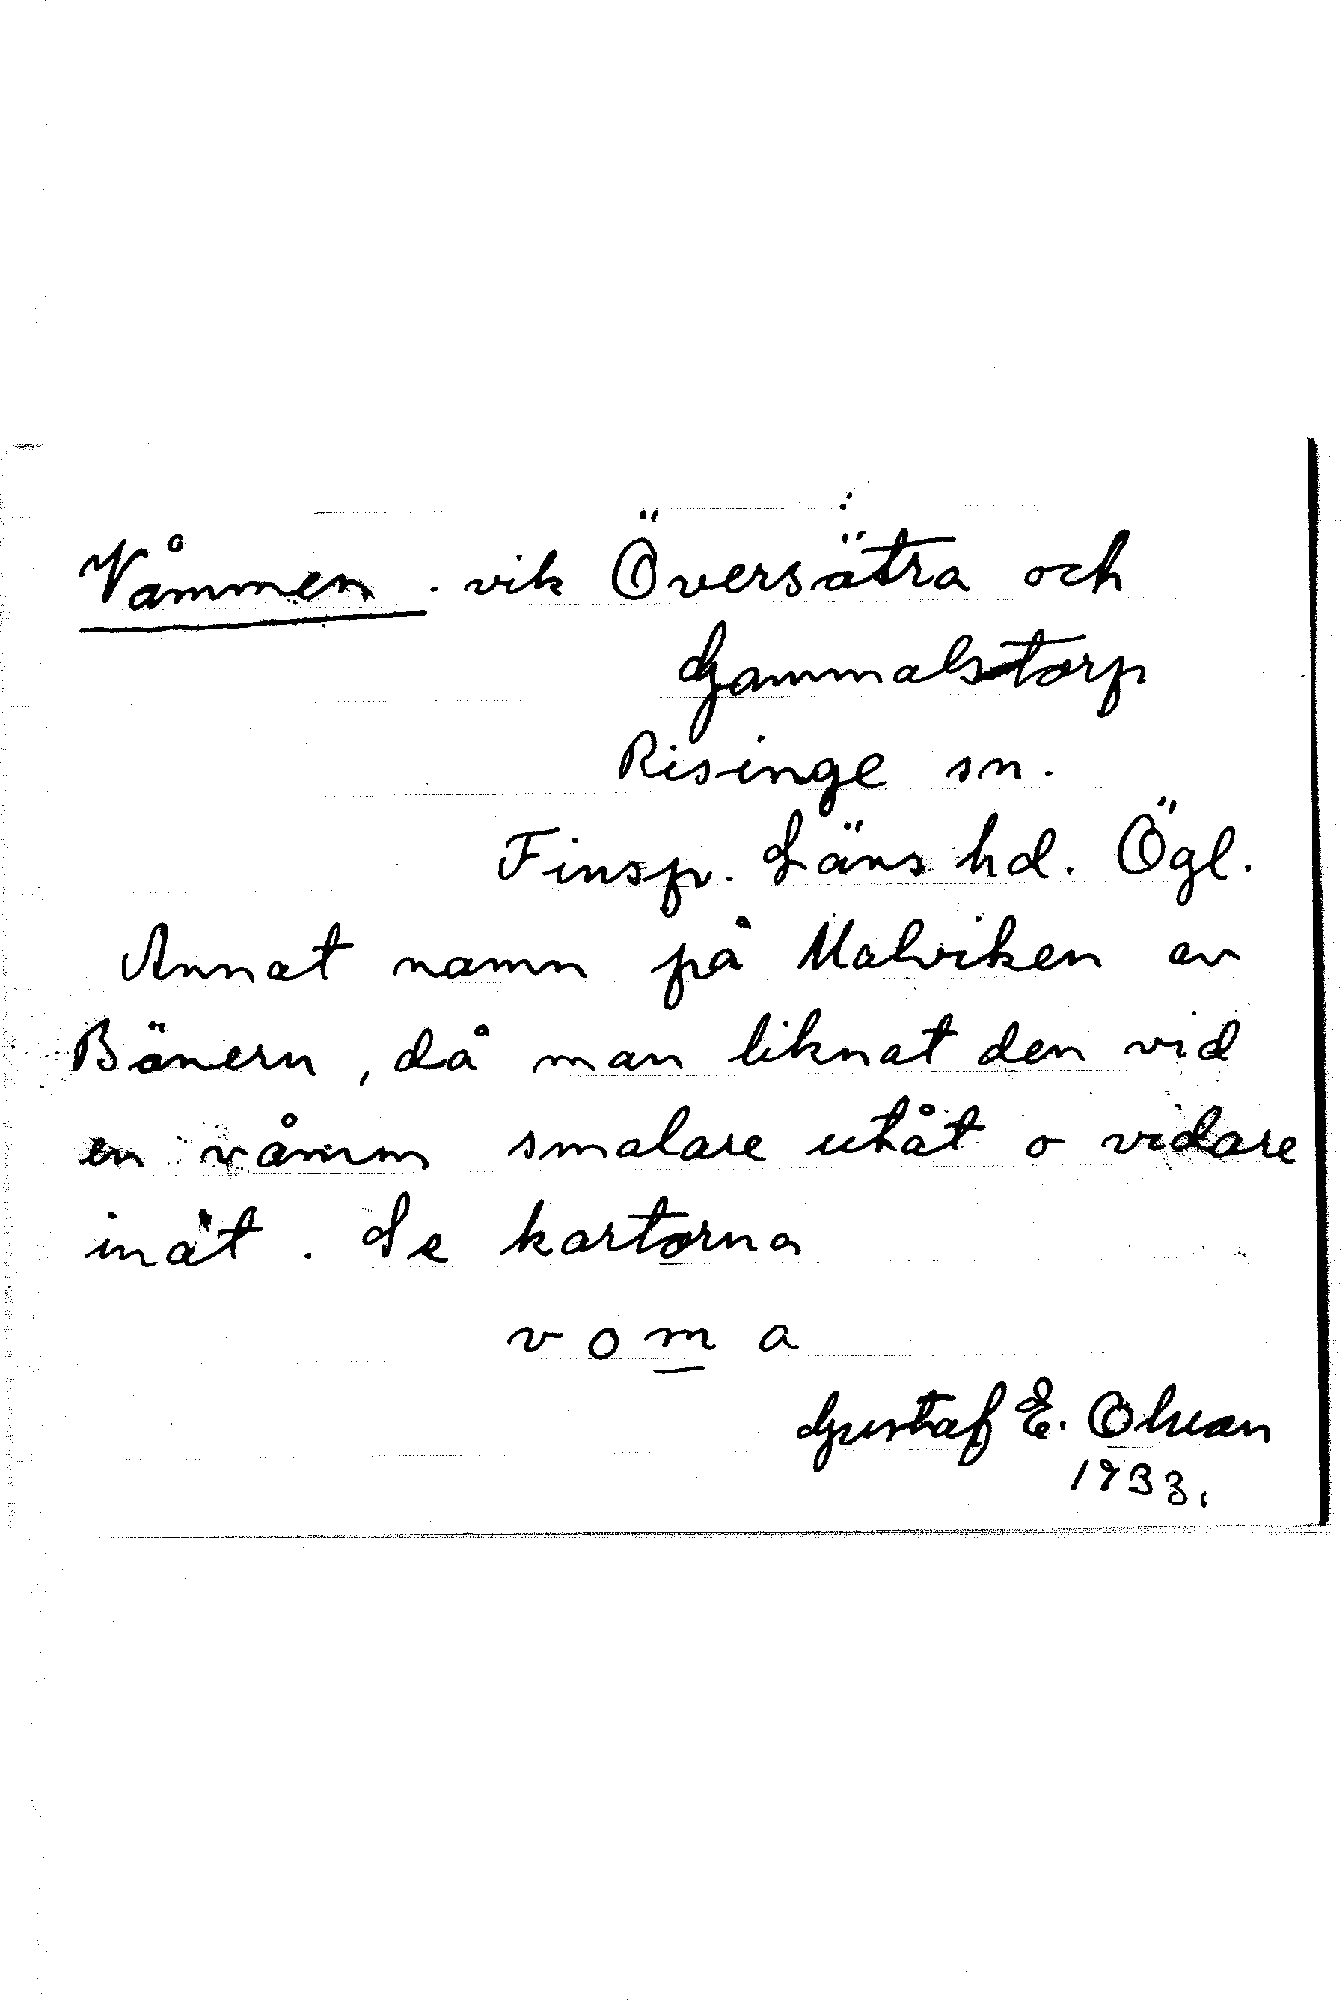 Våmmen . vik Översätra och
Gammalstorp
Risinge sn.
Finsp. Läns hd. Ögl.
Annat namn på Malviken av
Bönern, då man liknat den vid
en våmm smalare utåt o vidare
inåt. Se kartorna
voma
Gustaf E. Olson
1933.